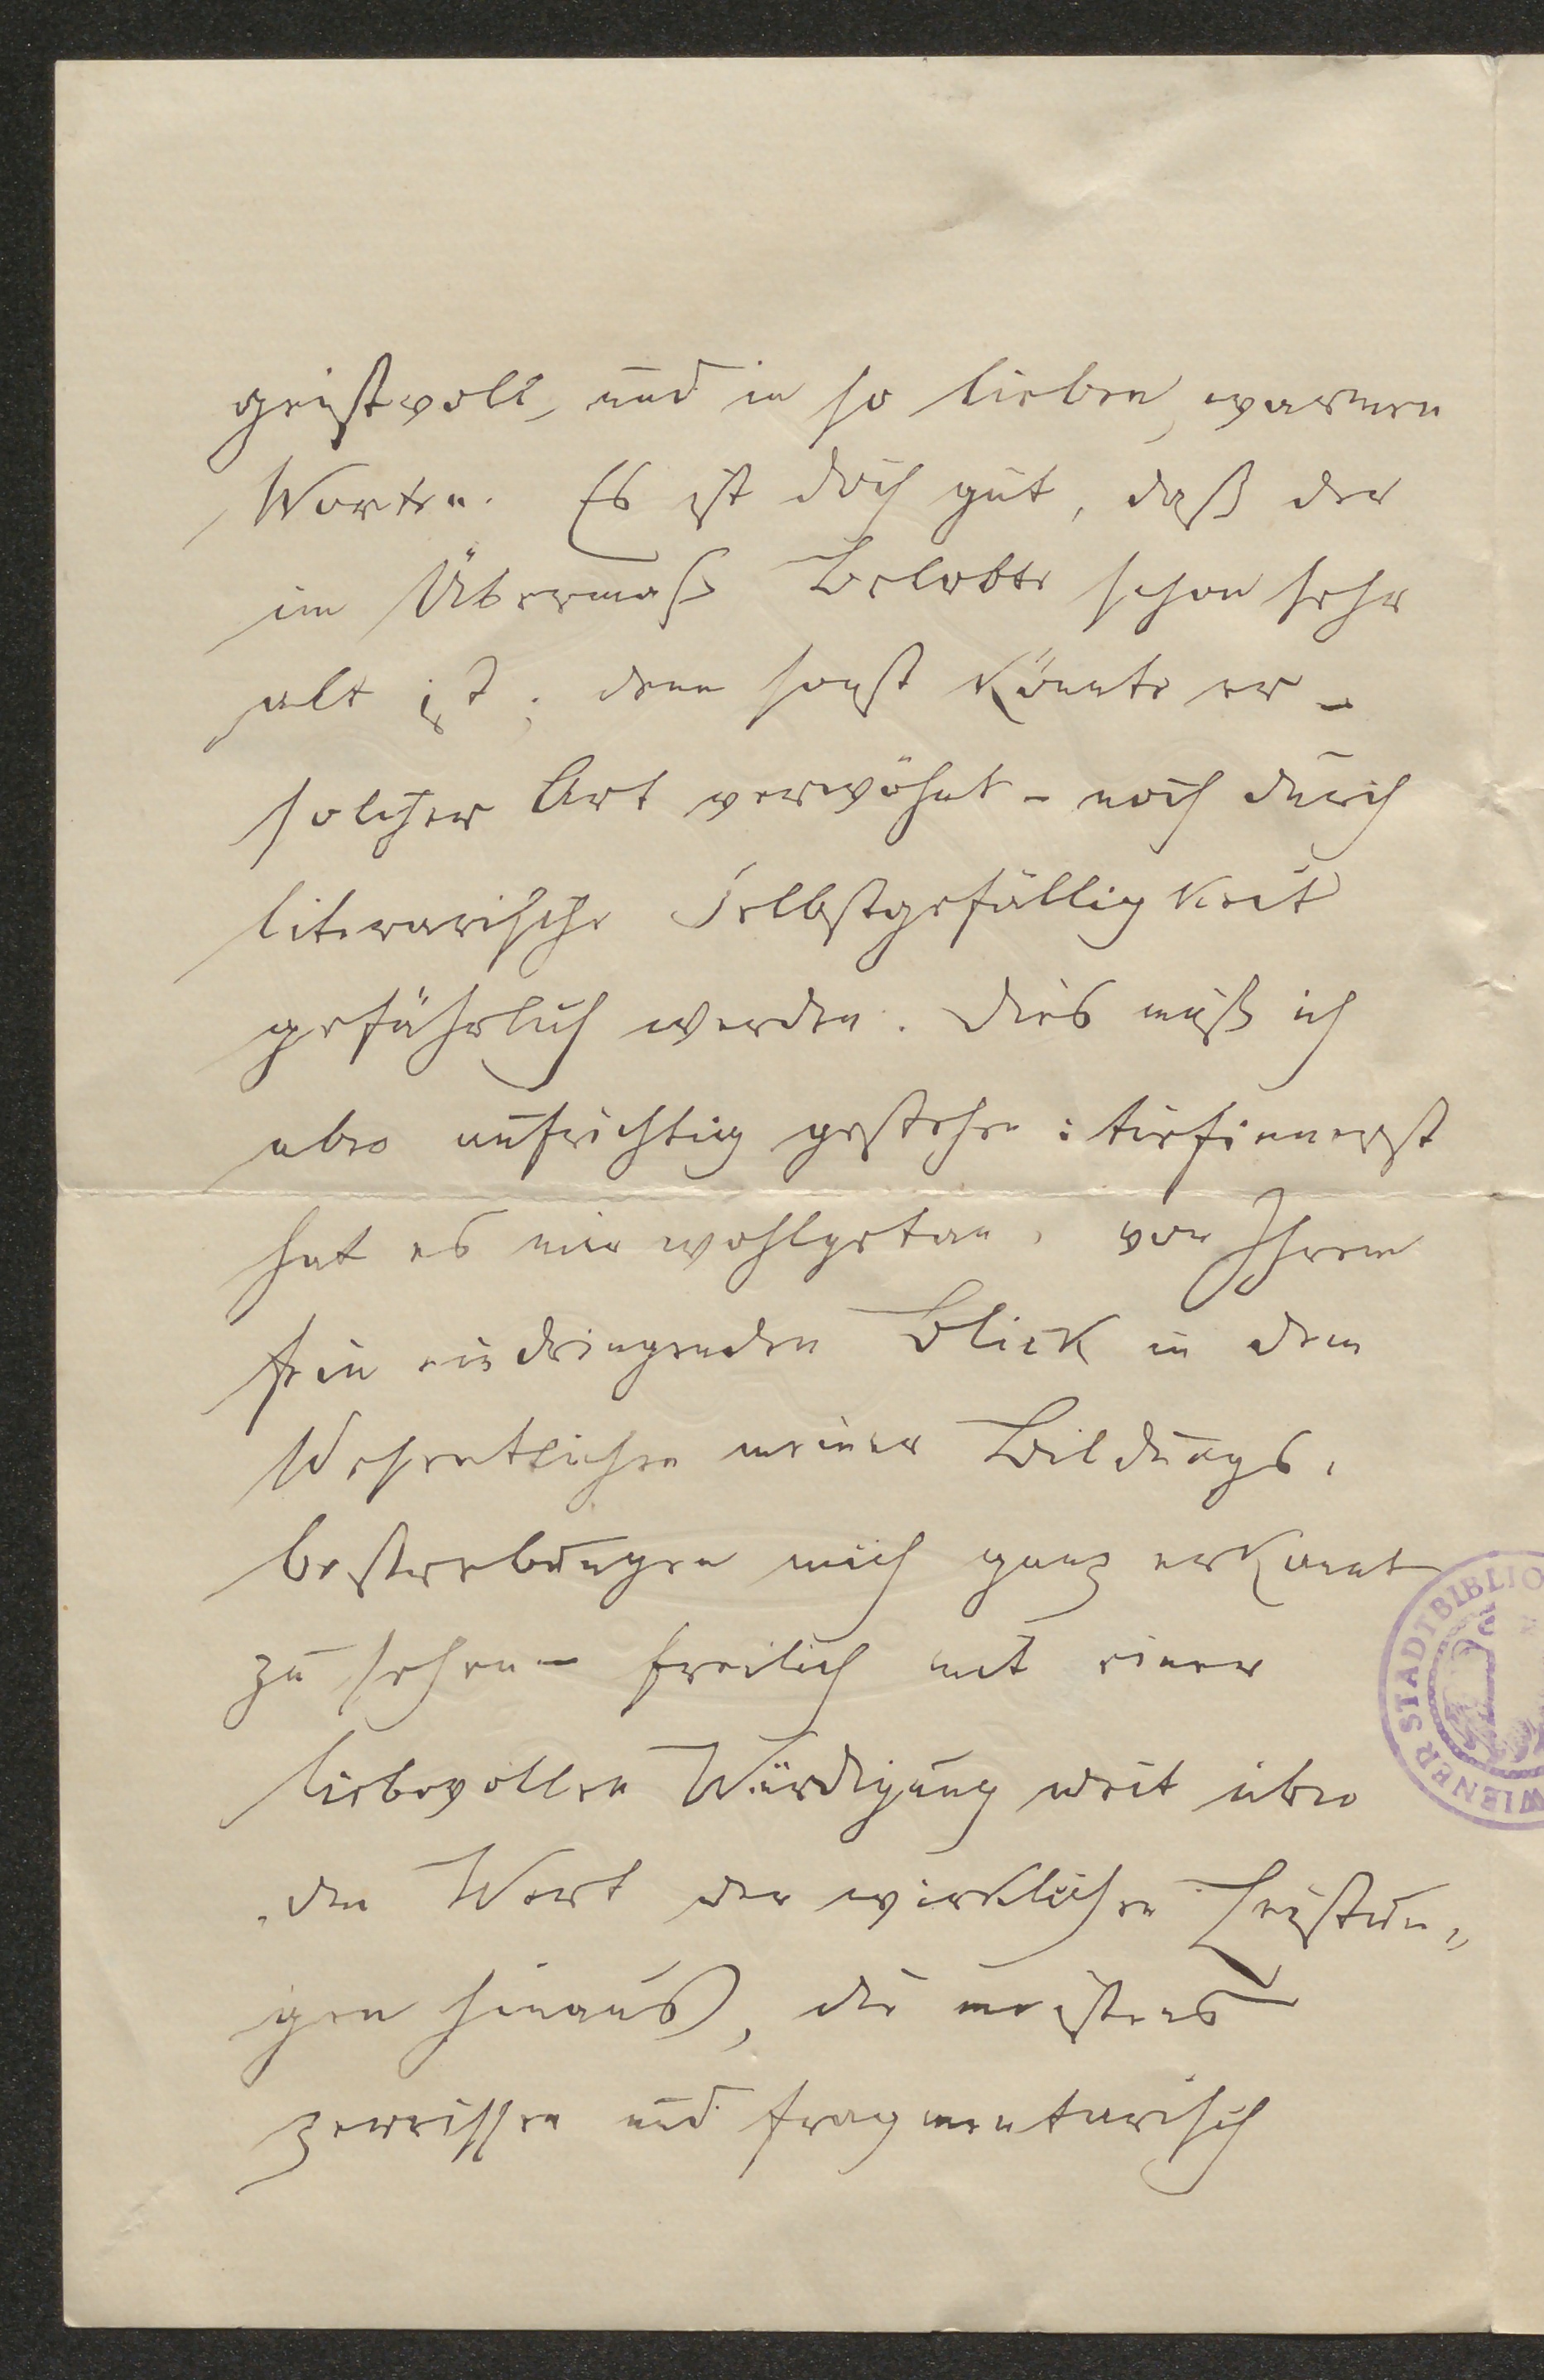 geistvoll, und in so lieben, warmen
Worten. Es ist doch gut, daß der
im Übermaß Belobte schon sehr
alt ist; denn sonst könnte er –
solcher Art verwöhnt – noch durch
literarische Selbstgefälligkeit
gefährlich werden. Dies muß ich
aber aufrichtig gestehen: tiefinnerst
hat es mir wohlgetan, von Ihrem
fein eindringenden Blick in dem
Wesentlichen meiner Bildungs-
bestrebungen mich ganz erkannt
zu sehen – freilich mit einer
liebevollen Würdigung weit über
den Wert der wirklichen Leistun-
gen hinaus, die meistens
zerrissen und fragmentarisch
WIENER STADTBIBLIO